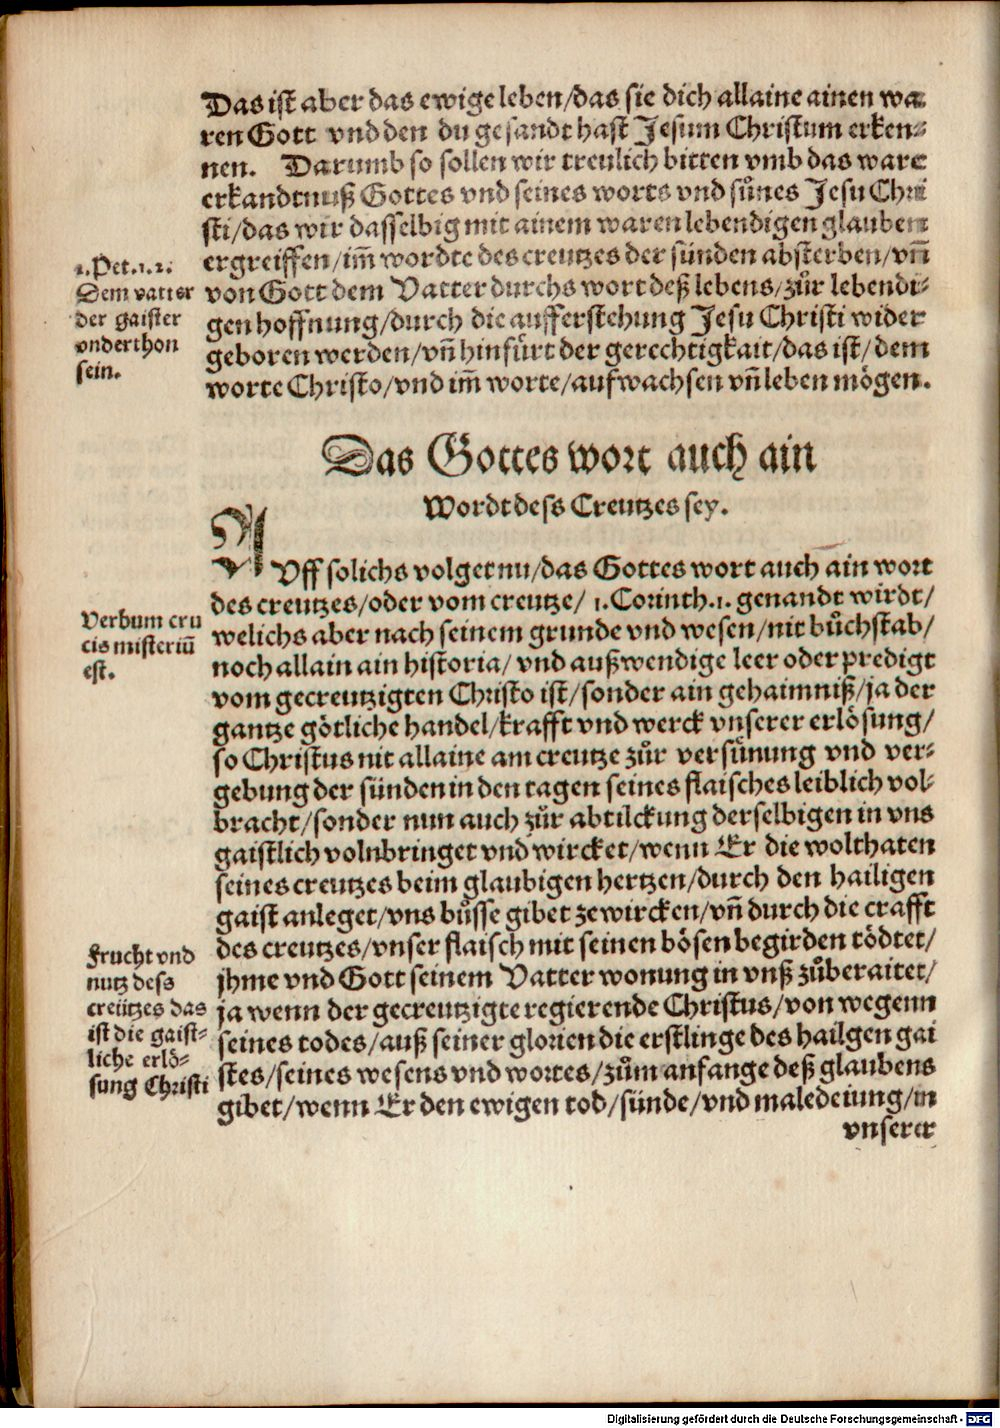 Das ist aber das ewige leben/das sie dich allaine ainen wa
ren Gott vnd den du gesandt hast Jesum Christum erken-
nen. Darumb so sollen wir treulich bitten vmb das ware
erkandtnuß Gottes vnd seines worts vnd sůnes Jesu Chri
sti/das wir dasselbig mit ainem waren lebendigen glauben
ergreiffen/im̃ wordte des creutzes der sünden absterben/vñ
von Gott dem Vatter durchs wort deß lebens/zůr lebendi-
gen hoffnung/durch die aufferstehung Jesu Christi wider
geboren werden/vñ hinfürt der gerechtigkait/das ist/dem
worte Christo/vnd im̃ worte/aufwachsen vñ leben mögen.
1. Pet. 1. 2.
Dem vatter
der gaister
vnderthon
sein.
Das Gottes wort auch ain
Wordt dess Creutzes sey.
AVff solichs volget nu/das Gottes wort auch ain wort
des creutzes/oder vom creutze/ 1. Corinth. 1. genandt wirdt/
welichs aber nach seinem grunde vnd wesen/nit bůchstab/
noch allain ain historia/ vnd außwendige leer oder predigt
vom gecreutzigten Christo ist/sonder ain gehaimniß/ja der
gantze götliche handel/krafft vnd werck vnserer erlösung/
so Christus nit allaine am creutze zůr versünung vnd ver-
gebung der sünden in den tagen seines flaisches leiblich vol-
bracht/sonder nun auch zůr abtilckung derselbigen in vns
gaistlich volnbringet vnd wircket/wenn Er die wolthaten
seines creutzes beim glaubigen hertzen/durch den hailigen
gaist anleget/vns bůsse gibet ze wircken/vñ durch die crafft
des creutzes/vnser flaisch mit seinen bösen begirden tödtet/
jhme vnd Gott seinem Vatter wonung in vnß zůberaitet/
ja wenn der gecreutzigte regierende Christus/von wegenn
seines todes/auß seiner glorien die erstlinge des hailgen gai
stes/seines wesens vnd wortes/zům anfange deß glaubens
gibet/wenn Er den ewigen tod/sünde/vnd maledeiung/in
vnserer
Verbum cru
cis misteriũ
est.
Frucht vnd
nutz dess
creützes das
ist die gaist-
liche erlö-
sung Christi
Digitalisierung gefördert durch die Deutsche Forschungsgemeinschaft - DFG